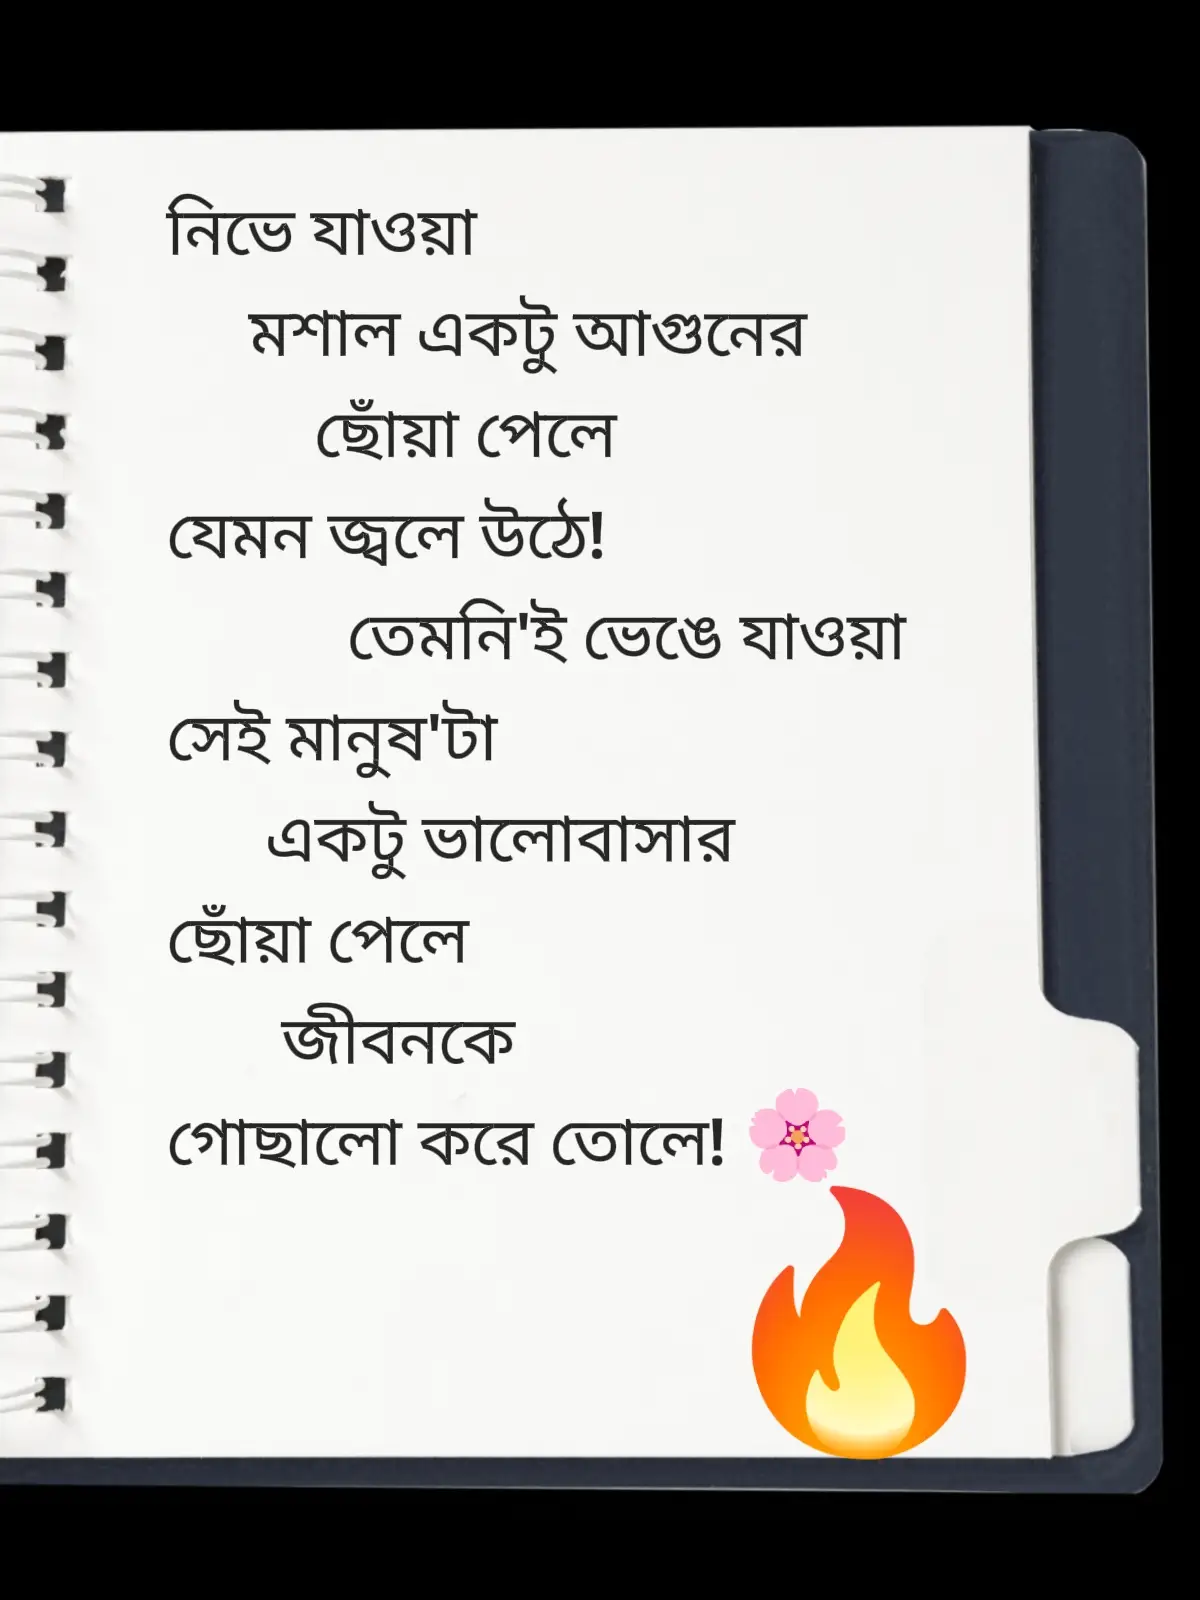 নিভে যাওয়া
মশাল একটু আগুনের
ছোঁয়া পেলে
যেমন জ্বলে উঠে!
তেমনি'ই ভেঙে যাওয়া
সেই মানুষ'টা
একটু ভালোবাসার
ছোঁয়া পেলে
জীবনকে
গোছালো করে তোলে! 🌸
🔥